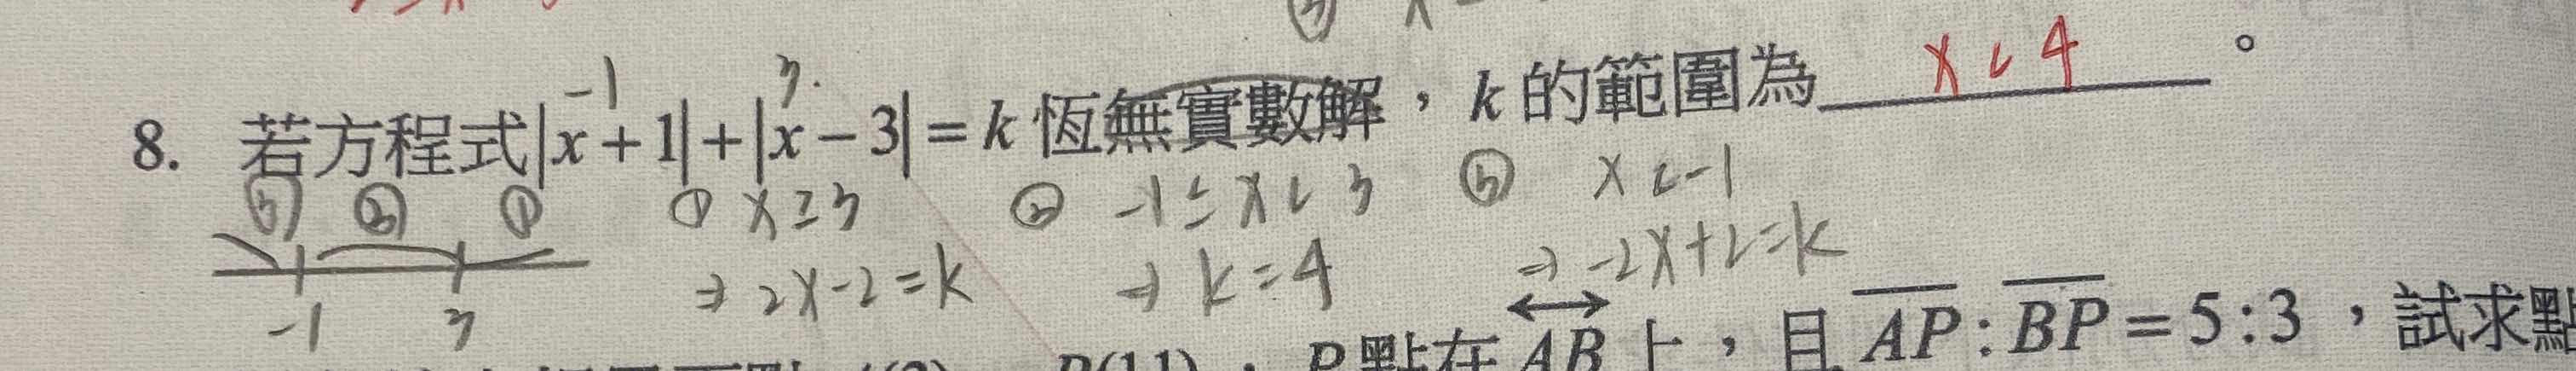 8. 若方程式|x+1|+|x-3|=k 恆無實數解，k 的範圍為 x<4 。
-1 3
③ ② ① ① x≥3 ② -1≤x<3 ③ x<-1
⇒ 2x-2=k ⇒ k=4 ⇒ -2x+2=k
-1 3
P點在 AB 上，且 AP:BP=5:3，試求點